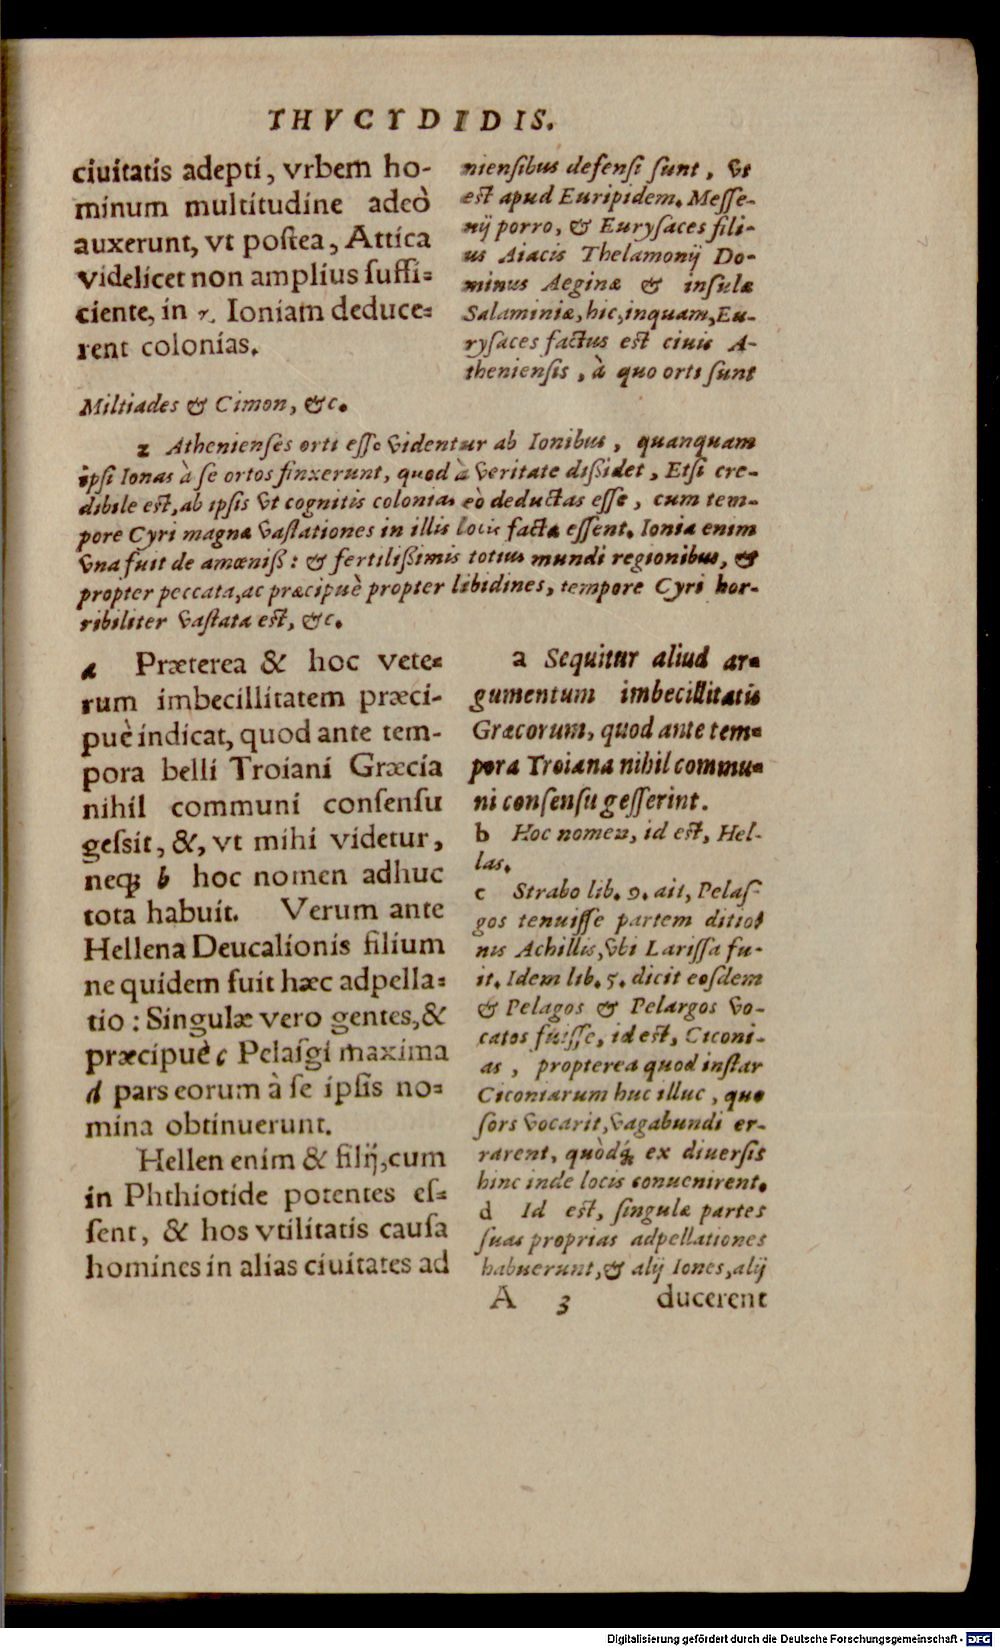 THVCYDIDIS.
ciuitatis adepti, vrbem ho-
minum multitudine adeò
auxerunt, vt postea, Attica
videlicet non amplius suffi-
ciente, in z. Ioniam deduce-
rent colonias.
niensibus defensi sunt, vt
est apud Euripidem. Messe-
nij porro, & Eurysaces fili-
us Aiacis Thelamonij Do-
minus Aeginæ & insulæ
Salaminiæ, hic, inquam, Eu-
rysaces factus est ciuis A-
theniensis, à quo orti sunt
Miltiades & Cimon, &c.
z Athenienses orti esse videntur ab Ionibus, quanquam
ipsi Ionas à se ortos finxerunt, quod à veritate dissidet, Etsi cre-
dibile est, ab ipsis vt cognitis colonias eò deductas esse, cum tem-
pore Cyri magnæ vastationes in illis locis factæ essent. Ionia enim
vna fuit de amœniss: & fertilissimis totius mundi regionibus, &
propter peccata, ac præcipuè propter libidines, tempore Cyri hor-
ribiliter vastata est, &c.
a Præterea & hoc vete-
rum imbecillitatem præci-
puè indicat, quod ante tem-
pora belli Troiani Græcia
nihil communi consensu
gessit, &, vt mihi videtur,
neq; b hoc nomen adhuc
tota habuit. Verum ante
Hellena Deucalionis filium
ne quidem fuit hæc adpella-
tio: Singulæ vero gentes, &
præcipuè c Pelasgi maxima
d pars eorum à se ipsis no-
mina obtinuerunt.
Hellen enim & filij, cum
in Phthiotide potentes es-
sent, & hos vtilitatis causa
homines in alias ciuitates ad
a Sequitur aliud ar-
gumentum imbecillitatis
Græcorum, quod ante tem-
pora Troiana nihil commu-
ni consensu gesserint.
b Hoc nomen, id est, Hel-
las.
c Strabo lib. 9. ait, Pelas-
gos tenuisse partem ditio-
nis Achillis, vbi Larissa fu-
it. Idem lib. 5. dicit eosdem
& Pelagos & Pelargos vo-
catos fuisse, id est, Ciconi-
as, propterea quod instar
Ciconiarum huc illuc, quo
sors vocarit, vagabundi er-
rarent, quòdq; ex diuersis
hinc inde locis conuenirent.
d Id est, singulæ partes
suas proprias adpellationes
habuerunt, & alij Iones, alij
A 3 ducerent
Digitalisierung gefördert durch die Deutsche Forschungsgemeinschaft - DFG